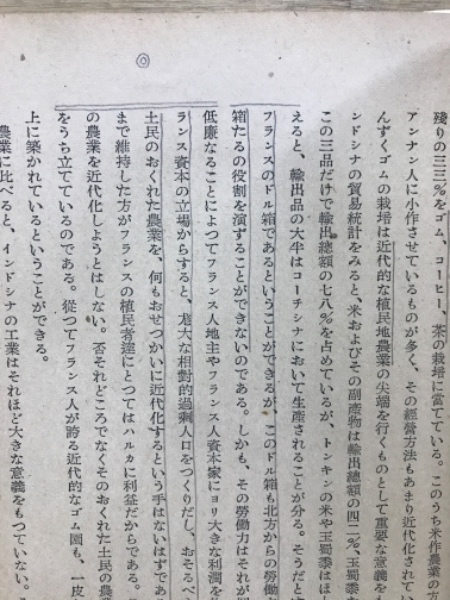 殘りの三三%をゴム、コーヒー、茶の栽培に當てている。このうち米作農業の方
アンナン人に小作させているものが多く、その經營方法もあまり近代化されてい
んずくゴムの栽培は近代的な植民地農業の尖端を行くものとして重要な意義を
ンドシナの貿易統計をみると、米およびその副産物は輸出總額の四二%、玉蜀黍
この三品だけで輸出總額の七八%を占めているが、トンキンの米や玉蜀黍はほ
えると、輸出品の大半はコーチシナにおいて生産されることが分る。そうだと
フランスのドル箱であるということができるが、このドル箱も北方からの勞働
箱たるの役割を演ずることができないのである。しかも、その勞働力はそれが
低廉なることによつてフランス人地主やフランス人資本家にヨリ大きな利潤を
ランス資本の立場からすると、尨大な相對的過剩人口をつくりだし、おそるべ
土民のおくれた農業を、何もおせつかいに近代化するという手はないはずであ
まで維持した方がフランスの植民者達にとつてはハルカに利益だからである。
の農業を近代化しようとはしない。否それどころでなくそのおくれた土民の農業
をうち立てているのである。從つてフランス人が誇る近代的なゴム園も、一皮
上に築かれているということができる。
農業に比べると、インドシナの工業はそれほど大きな意義をもつていない。